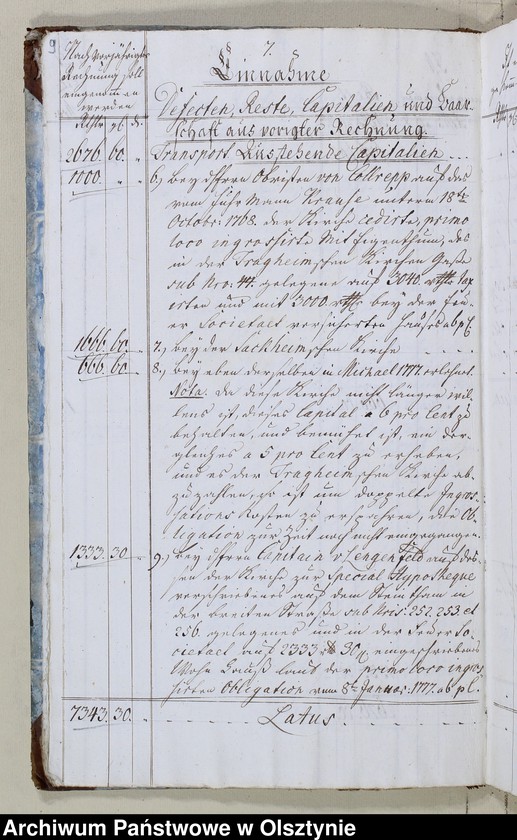 9
7.
Einnahme
Nach vorjährigter
Rechnung soll
eingenommen
werden
Rthlr. gl. d.
Defecten, Reste, Capitalien und Baar-
schaft aus voriger Rechnung.
2676. 60. " Transport Ausstehende Capitalien
1000. " " 6., bey dem Herrn Obristen von Collrepp auf des
vom Fuhrmann Krause unterm 18ten
Octobr: 1768. der Kirche cedirte, primo
loco ingrossirte Mit Eigenthum, des
in der Tragheimschen Kirchen Gasse
sub Nro: 44. gelegene auf 3040. rthlr tax-
irten und mit 3000. rthlr bey der Feu-
er Societaet versicherten Hauses ab pl.
1666. 60. 7., bey der Sackheimschen Kirche
666. 60. 8., bey eben derselben in Michael 1777.
Nota. Da diese Kirche nicht länger wil-
lens ist, dieses Capital a 6 pro Cent zu
behalten, und bemühet ist, ein der-
gleiches a 5 pro Cent zu erheben,
und es der Tragheimschen Kirche ab-
zuzahlen, so ist um doppelte Ingros-
sations Kosten zu ersparen, die Ob-
ligation zur Zeit noch nicht eingegangen.
1333. 30. 9., bey dem Herrn Capitain v Lengenfeld auf des-
sen der Kirche zur Special Hypotheque
verschriebenes auf dem Steindam in
der breiten Straße sub Nris: 252. 253 et
256. gelegenes und in der Feuer So-
cietaet auf 2333 rthlr 30 gl. eingeschriebenes
Wohn Hauß laut der primo loco ingros-
sirten Obligation vom 8t Januar: 1777. ab pl.
7343. 30. Latus
Archiwum Państwowe w Olsztynie